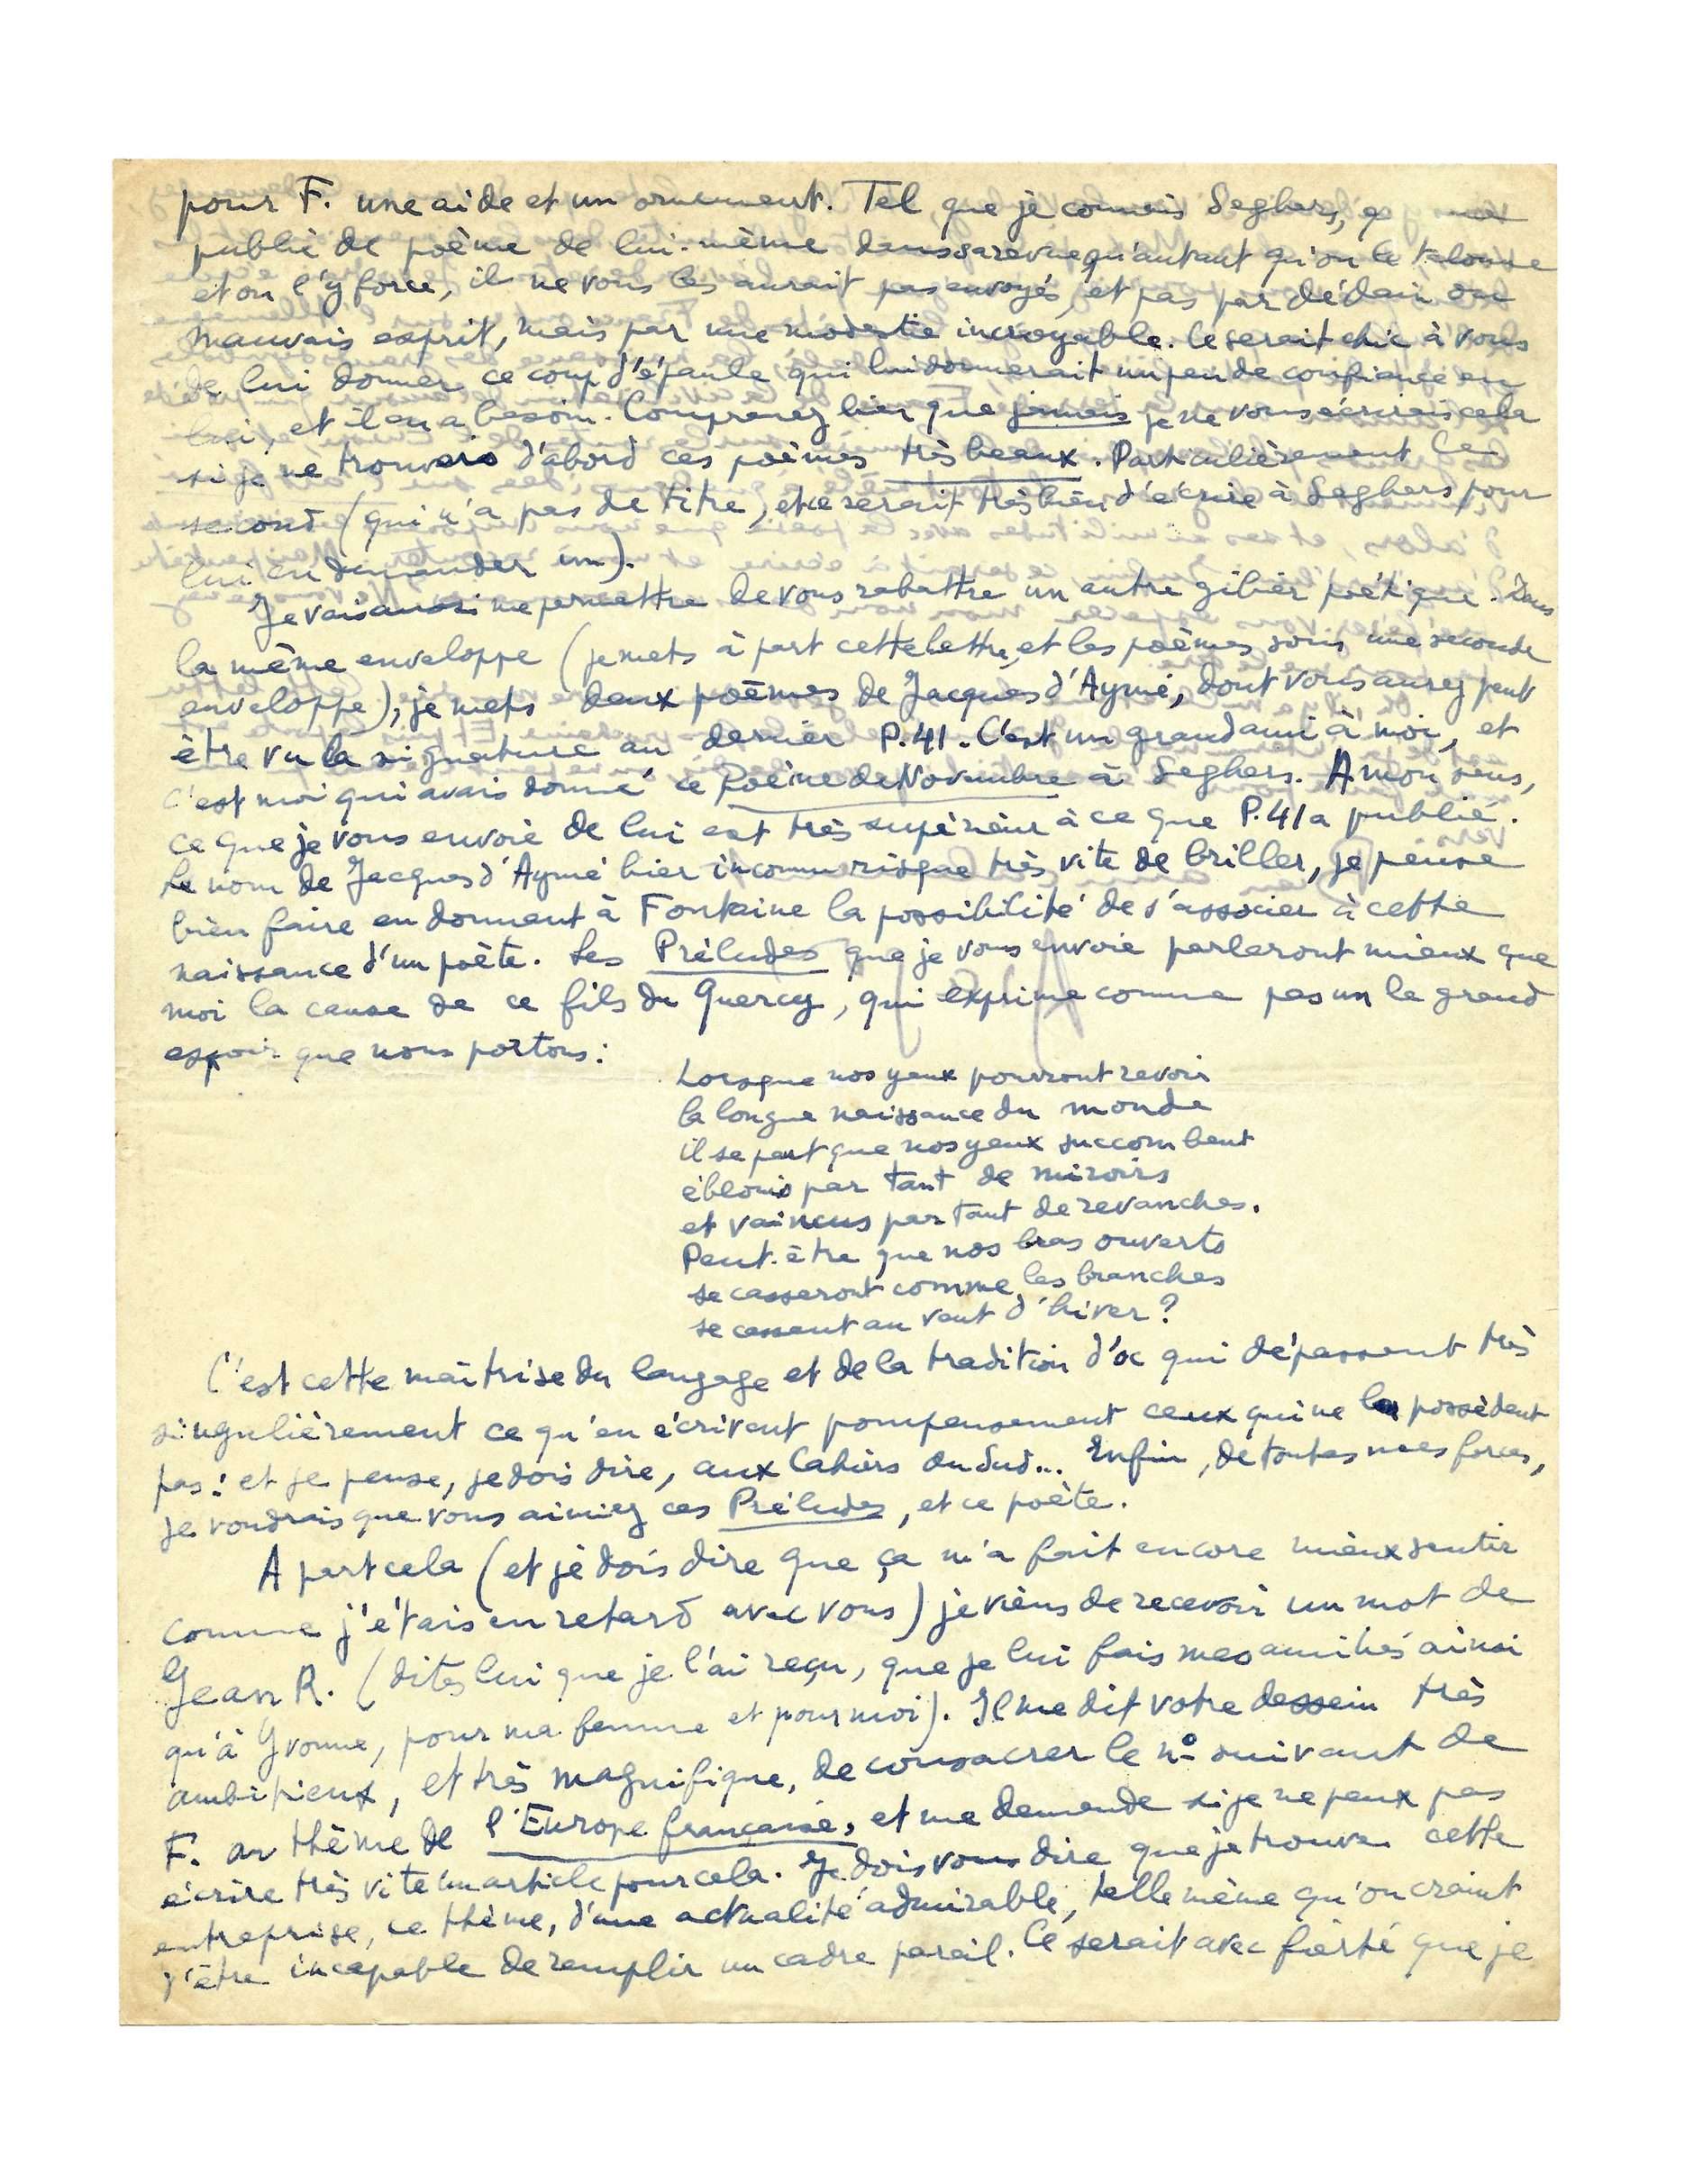 pour F. une aide et un ornement. Tel que je connais Seghers, q ne
publie de poème de lui-même dans sa revue qu'autant qu'on le talonne
et on l'y force, il ne vous les aurait pas envoyés, et pas par dédain ou
mauvais esprit, mais par une modestie incroyable. Ce serait chic à vous
de lui donner ce coup d'épaule qui lui donnerait un peu de confiance en
lui, et il en a besoin. Comprenez bien que jamais je ne vous écrirais cela
si je ne trouvais d'abord ces poèmes très beaux. Particulièrement le
second (qui n'a pas de titre, et ce serait très bien d'écrire à Seghers pour
lui en demander un).
Je vais aussi me permettre de vous rabattre un autre gibier poétique. Dans
la même enveloppe (je mets à part cette lettre, et les poèmes sous une seconde
enveloppe), je mets deux poèmes de Jacques d'Aymé, dont vous aurez peut
être vu la signature au dernier P.41. C'est un grand ami à moi, et
c'est moi qui avais donné ce Poème de Novembre à Seghers. A mon sens,
ce que je vous envoie de lui est très supérieur à ce que P.41 a publié.
Le nom de Jacques d'Aymé hier inconnu risque très vite de briller, je pense
bien faire en donnant à Fontaine la possibilité de s'associer à cette
naissance d'un poète. Les Préludes que je vous envoie parleront mieux que
moi la cause de ce fils du Quercy, qui exprime comme pas un le grand
espoir que nous portons :
Lorsque nos yeux pourront revoir
la longue naissance du monde
il se peut que nos yeux succombent
éblouis par tant de miroirs
et vaincus par tant de revanches.
Peut-être que nos bras ouverts
se casseront comme les branches
se cassent au vent d'hiver ?
C'est cette maîtrise du langage et de la tradition d'oc qui dépassent très
singulièrement ce qu'en écrivent pompeusement ceux qui ne la possèdent
pas : et je pense, je dois dire, aux Cahiers du Sud... Enfin, de toutes mes forces,
je voudrais que vous aimiez ces Préludes, et ce poète.
A part cela (et je dois dire que ça m'a fait encore mieux sentir
comme j'étais en retard avec vous) je viens de recevoir un mot de
Jean R. (dites lui que je l'ai reçu, que je lui fais mes amitiés ainsi
qu'à Yvonne, pour ma femme et pour moi). Il me dit votre dessein très
ambitieux, et très magnifique, de consacrer le n° suivant de
F. au thème de l'Europe française, et me demande si je ne peux pas
écrire très vite un article pour cela. Je dois vous dire que je trouve cette
entreprise, ce thème, d'une actualité admirable, telle même qu'on craint
d'être incapable de remplir un cadre pareil. Ce serait avec fierté que je